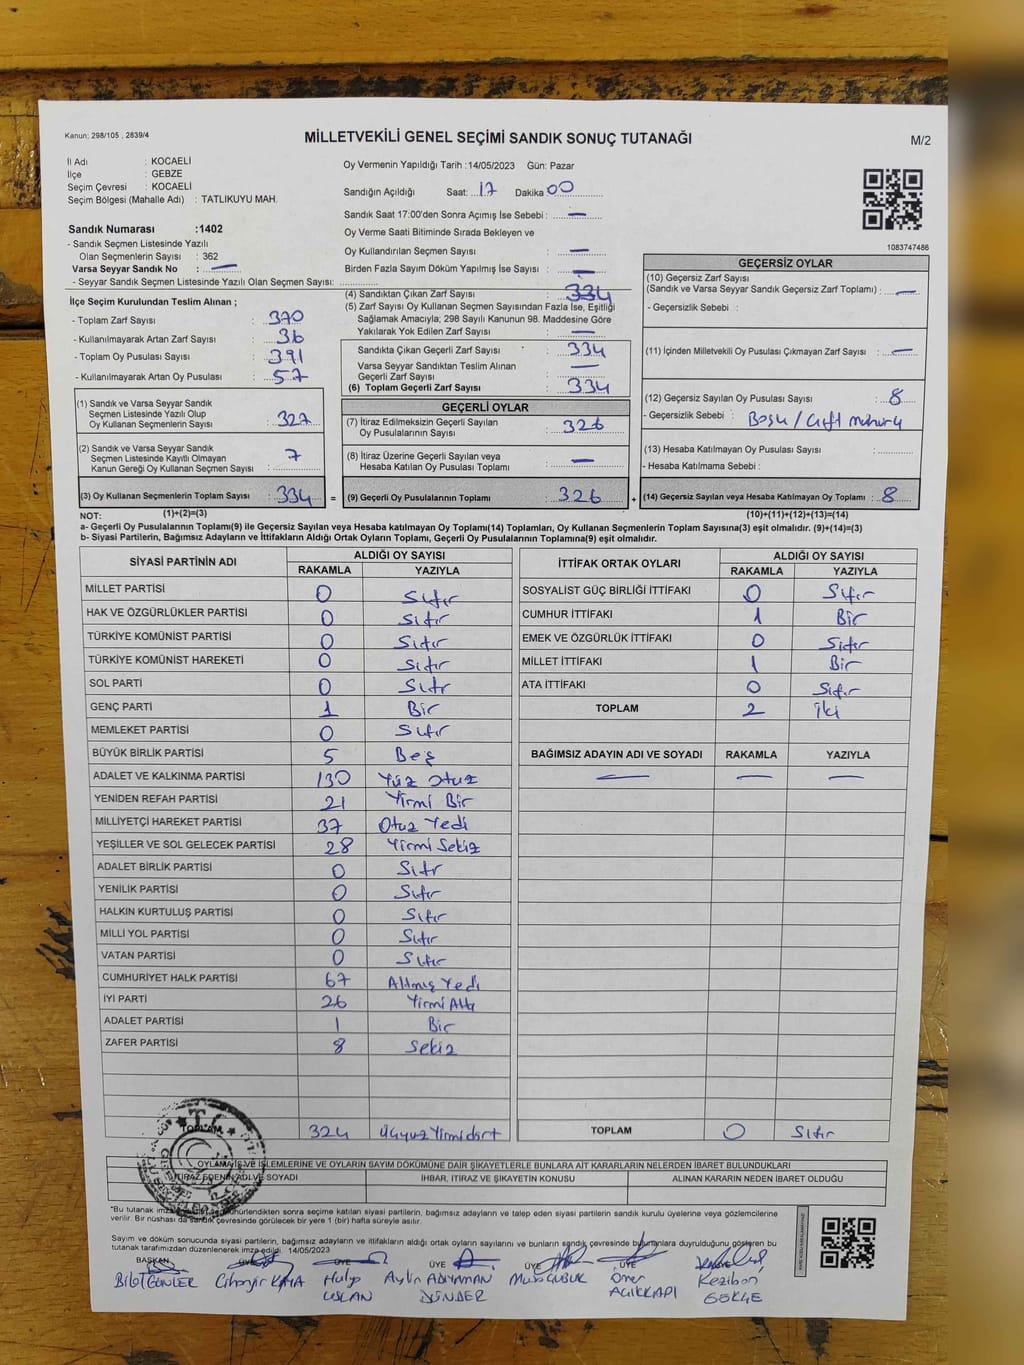 Kanun; 298/105 , 2839/4
MİLLETVEKİLİ GENEL SEÇİMİ SANDIK SONUÇ TUTANAĞI
M/2
İl Adı : KOCAELİ
İlçe : GEBZE
Seçim Çevresi : KOCAELİ
Seçim Bölgesi (Mahalle Adı) : TATLIKUYU MAH.
Sandık Numarası :1402
- Sandık Seçmen Listesinde Yazılı
Olan Seçmenlerin Sayısı : 362
Varsa Seyyar Sandık No : —
- Seyyar Sandık Seçmen Listesinde Yazılı Olan Seçmen Sayısı:
İlçe Seçim Kurulundan Teslim Alınan ;
- Toplam Zarf Sayısı : 370
- Kullanılmayarak Artan Zarf Sayısı : 36
- Toplam Oy Pusulası Sayısı : 391
- Kullanılmayarak Artan Oy Pusulası : 57
(1) Sandık ve Varsa Seyyar Sandık
Seçmen Listesinde Yazılı Olup
Oy Kullanan Seçmenlerin Sayısı : 327
(2) Sandık ve Varsa Seyyar Sandık
Seçmen Listesinde Kayıtlı Olmayan
Kanun Gereği Oy Kullanan Seçmen Sayısı : 7
(3) Oy Kullanan Seçmenlerin Toplam Sayısı : 334
Oy Vermenin Yapıldığı Tarih :14/05/2023 Gün: Pazar
Sandığın Açıldığı Saat: 17 Dakika 00
Sandık Saat 17:00'den Sonra Açımış İse Sebebi : —
Oy Verme Saati Bitiminde Sırada Bekleyen ve
Oy Kullandırılan Seçmen Sayısı : —
Birden Fazla Sayım Döküm Yapılmış İse Sayısı : —
(4) Sandıktan Çıkan Zarf Sayısı : 334
(5) Zarf Sayısı Oy Kullanan Seçmen Sayısından Fazla İse, Eşitliği
Sağlamak Amacıyla; 298 Sayılı Kanunun 98. Maddesine Göre
Yakılarak Yok Edilen Zarf Sayısı : —
Sandıkta Çıkan Geçerli Zarf Sayısı : 334
Varsa Seyyar Sandıktan Teslim Alınan
Geçerli Zarf Sayısı : —
(6) Toplam Geçerli Zarf Sayısı : 334
GEÇERLİ OYLAR
(7) İtiraz Edilmeksizin Geçerli Sayılan
Oy Pusulalarının Sayısı : 326
(8) İtiraz Üzerine Geçerli Sayılan veya
Hesaba Katılan Oy Pusulası Toplamı : —
= (9) Geçerli Oy Pusulalarının Toplamı : 326
1083747486
GEÇERSİZ OYLAR
(10) Geçersiz Zarf Sayısı
(Sandık ve Varsa Seyyar Sandık Geçersiz Zarf Toplamı) : —
- Geçersizlik Sebebi :
(11) İçinden Milletvekili Oy Pusulası Çıkmayan Zarf Sayısı : —
(12) Geçersiz Sayılan Oy Pusulası Sayısı : 8
- Geçersizlik Sebebi : Boş / Çift mühürlü
(13) Hesaba Katılmayan Oy Pusulası Sayısı :
- Hesaba Katılmama Sebebi :
+ (14) Geçersiz Sayılan veya Hesaba Katılmayan Oy Toplamı : 8
NOT: (1)+(2)=(3)
(10)+(11)+(12)+(13)=(14)
a- Geçerli Oy Pusulalarının Toplamı(9) ile Geçersiz Sayılan veya Hesaba katılmayan Oy Toplamı(14) Toplamları, Oy Kullanan Seçmenlerin Toplam Sayısına(3) eşit olmalıdır. (9)+(14)=(3)
b- Siyasi Partilerin, Bağımsız Adayların ve İttifakların Aldığı Ortak Oyların Toplamı, Geçerli Oy Pusulalarının Toplamına(9) eşit olmalıdır.
SİYASİ PARTİNİN ADI ALDIĞI OY SAYISI
RAKAMLA YAZIYLA
MİLLET PARTİSİ 0 Sıfır
HAK VE ÖZGÜRLÜKLER PARTİSİ 0 Sıfır
TÜRKİYE KOMÜNİST PARTİSİ 0 Sıfır
TÜRKİYE KOMÜNİST HAREKETİ 0 Sıfır
SOL PARTİ 0 Sıfır
GENÇ PARTİ 1 Bir
MEMLEKET PARTİSİ 0 Sıfır
BÜYÜK BİRLİK PARTİSİ 5 Beş
ADALET VE KALKINMA PARTİSİ 130 Yüz otuz
YENİDEN REFAH PARTİSİ 21 Yirmi Bir
MİLLİYETÇİ HAREKET PARTİSİ 37 Otuz Yedi
YEŞİLLER VE SOL GELECEK PARTİSİ 28 Yirmi Sekiz
ADALET BİRLİK PARTİSİ 0 Sıfır
YENİLİK PARTİSİ 0 Sıfır
HALKIN KURTULUŞ PARTİSİ 0 Sıfır
MİLLİ YOL PARTİSİ 0 Sıfır
VATAN PARTİSİ 0 Sıfır
CUMHURİYET HALK PARTİSİ 67 Altmış Yedi
İYİ PARTİ 26 Yirmi Altı
ADALET PARTİSİ 1 Bir
ZAFER PARTİSİ 8 Sekiz
TOPLAM 324 Üçyüz Yirmidört
İTTİFAK ORTAK OYLARI ALDIĞI OY SAYISI
RAKAMLA YAZIYLA
SOSYALİST GÜÇ BİRLİĞİ İTTİFAKI 0 Sıfır
CUMHUR İTTİFAKI 1 Bir
EMEK VE ÖZGÜRLÜK İTTİFAKI 0 Sıfır
MİLLET İTTİFAKI 1 Bir
ATA İTTİFAKI 0 Sıfır
TOPLAM 2 İki
BAĞIMSIZ ADAYIN ADI VE SOYADI RAKAMLA YAZIYLA
— — —
TOPLAM 0 Sıfır
OYLAMA İŞ VE İŞLEMLERİNE VE OYLARIN SAYIM DÖKÜMÜNE DAİR ŞİKAYETLERLE BUNLARA AİT KARARLARIN NELERDEN İBARET BULUNDUKLARI
İTİRAZ EDENİN ADI VE SOYADI İHBAR, İTİRAZ VE ŞİKAYETİN KONUSU ALINAN KARARIN NEDEN İBARET OLDUĞU
"Bu tutanak imzalanıp mühürlendikten sonra seçime katılan siyasi partilerin, bağımsız adayların ve talep eden siyasi partilerin sandık kurulu üyelerine veya gözlemcilerine
verilir. Bir nüshası da sandık çevresinde görülecek bir yere 1 (bir) hafta süreyle asılır.
Sayım ve döküm sonucunda siyasi partilerin, bağımsız adayların ve ittifakların aldığı ortak oyların sayılarını ve bunların sandık çevresinde bulunanlara duyrulduğunu gösteren bu
tutanak tarafımızdan düzenlenerek imza edildi. 14/05/2023
BAŞKAN ÜYE ÜYE ÜYE ÜYE ÜYE
Bilat GÜNLER Cihangir KAYA Hülya USLAN Aylin ADIYAMAN DÜNDER Musa ÇUBUK Ömer AÇIKKAPI Keziban GÖKÇE